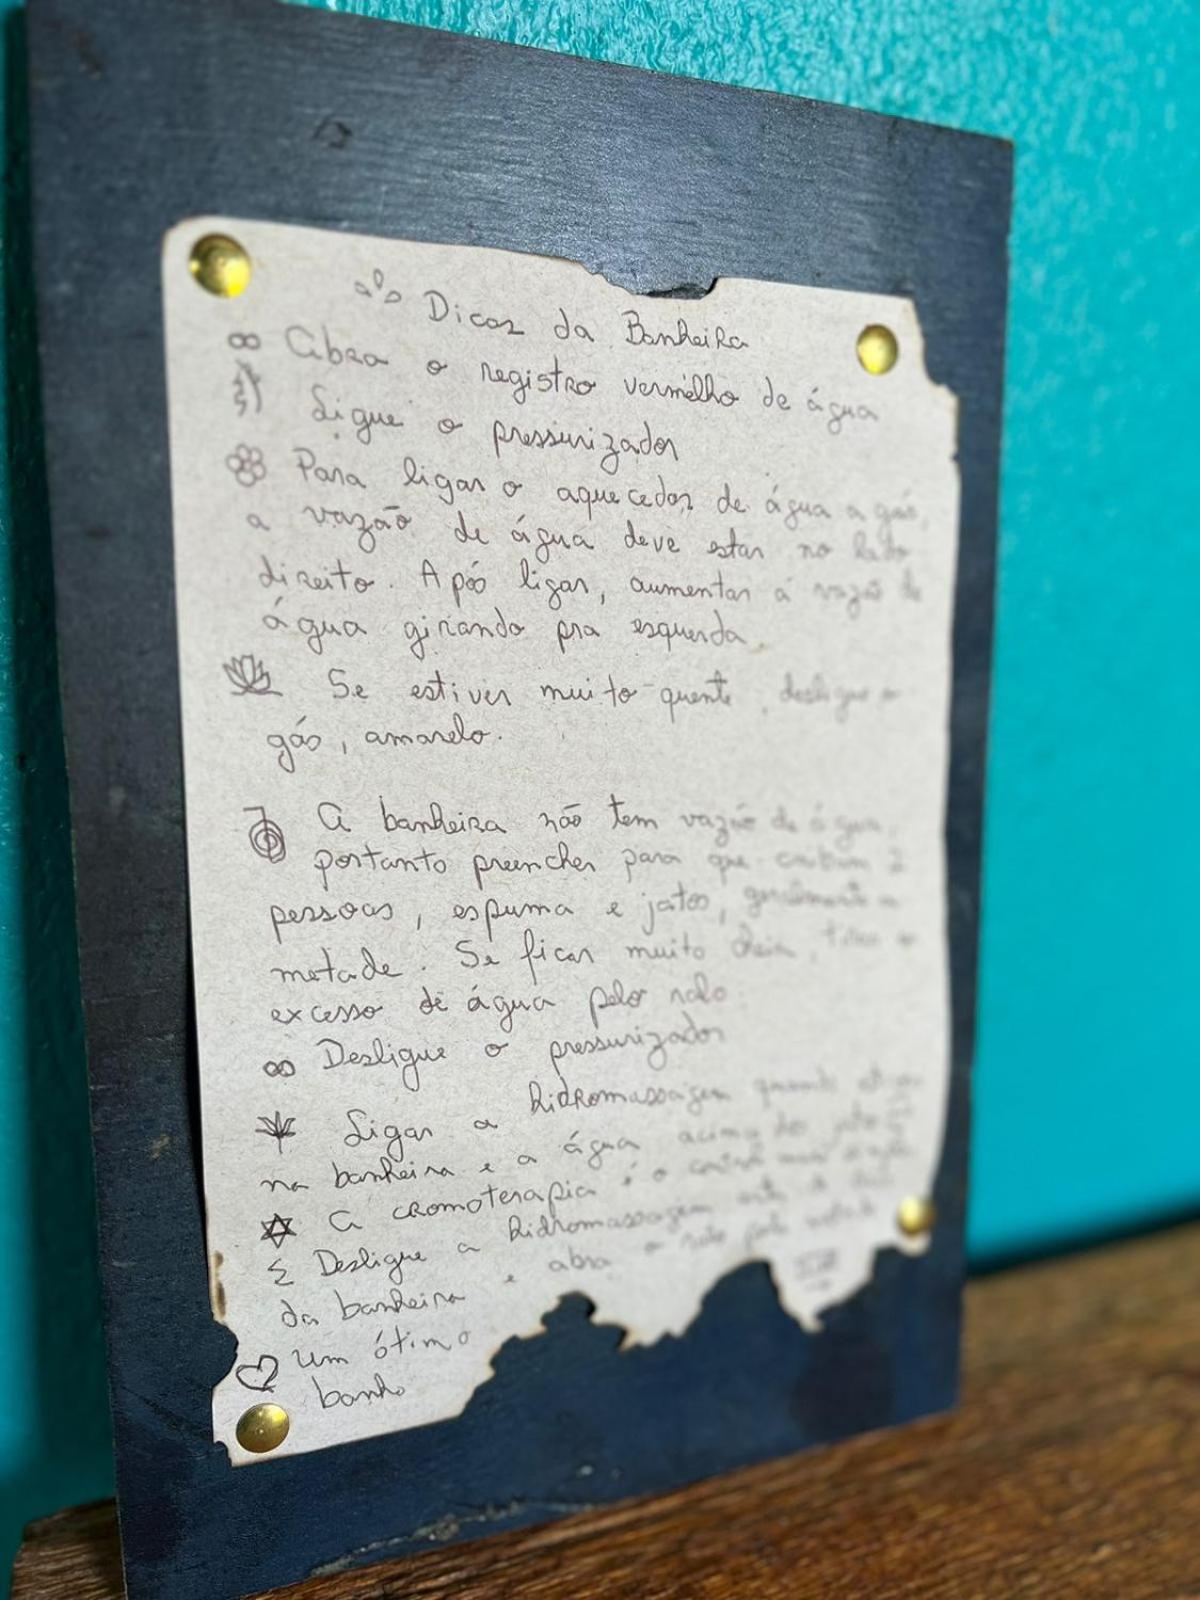 Dicas da Banheira
Abra o registro vermelho de água
Ligue o pressurizador
Para ligar o aquecedor de água a gás,
a vazão de água deve estar no lado
direito. Após ligar, aumentar a vazão de
água girando pra esquerda
Se estiver muito quente, desligue o
gás, amarelo.
A banheira não tem vazão de água,
portanto preencher para que caibam 2
pessoas, espuma e jatos, geralmente a
metade. Se ficar muito cheia, o
excesso de água pelo ralo
Desligue o pressurizador
Ligar a hidromassagem quando
na banheira e a água acima dos jatos
A cromoterapia é o
Desligue a hidromassagem antes de sair
da banheira e abra o ralo
um ótimo
banho